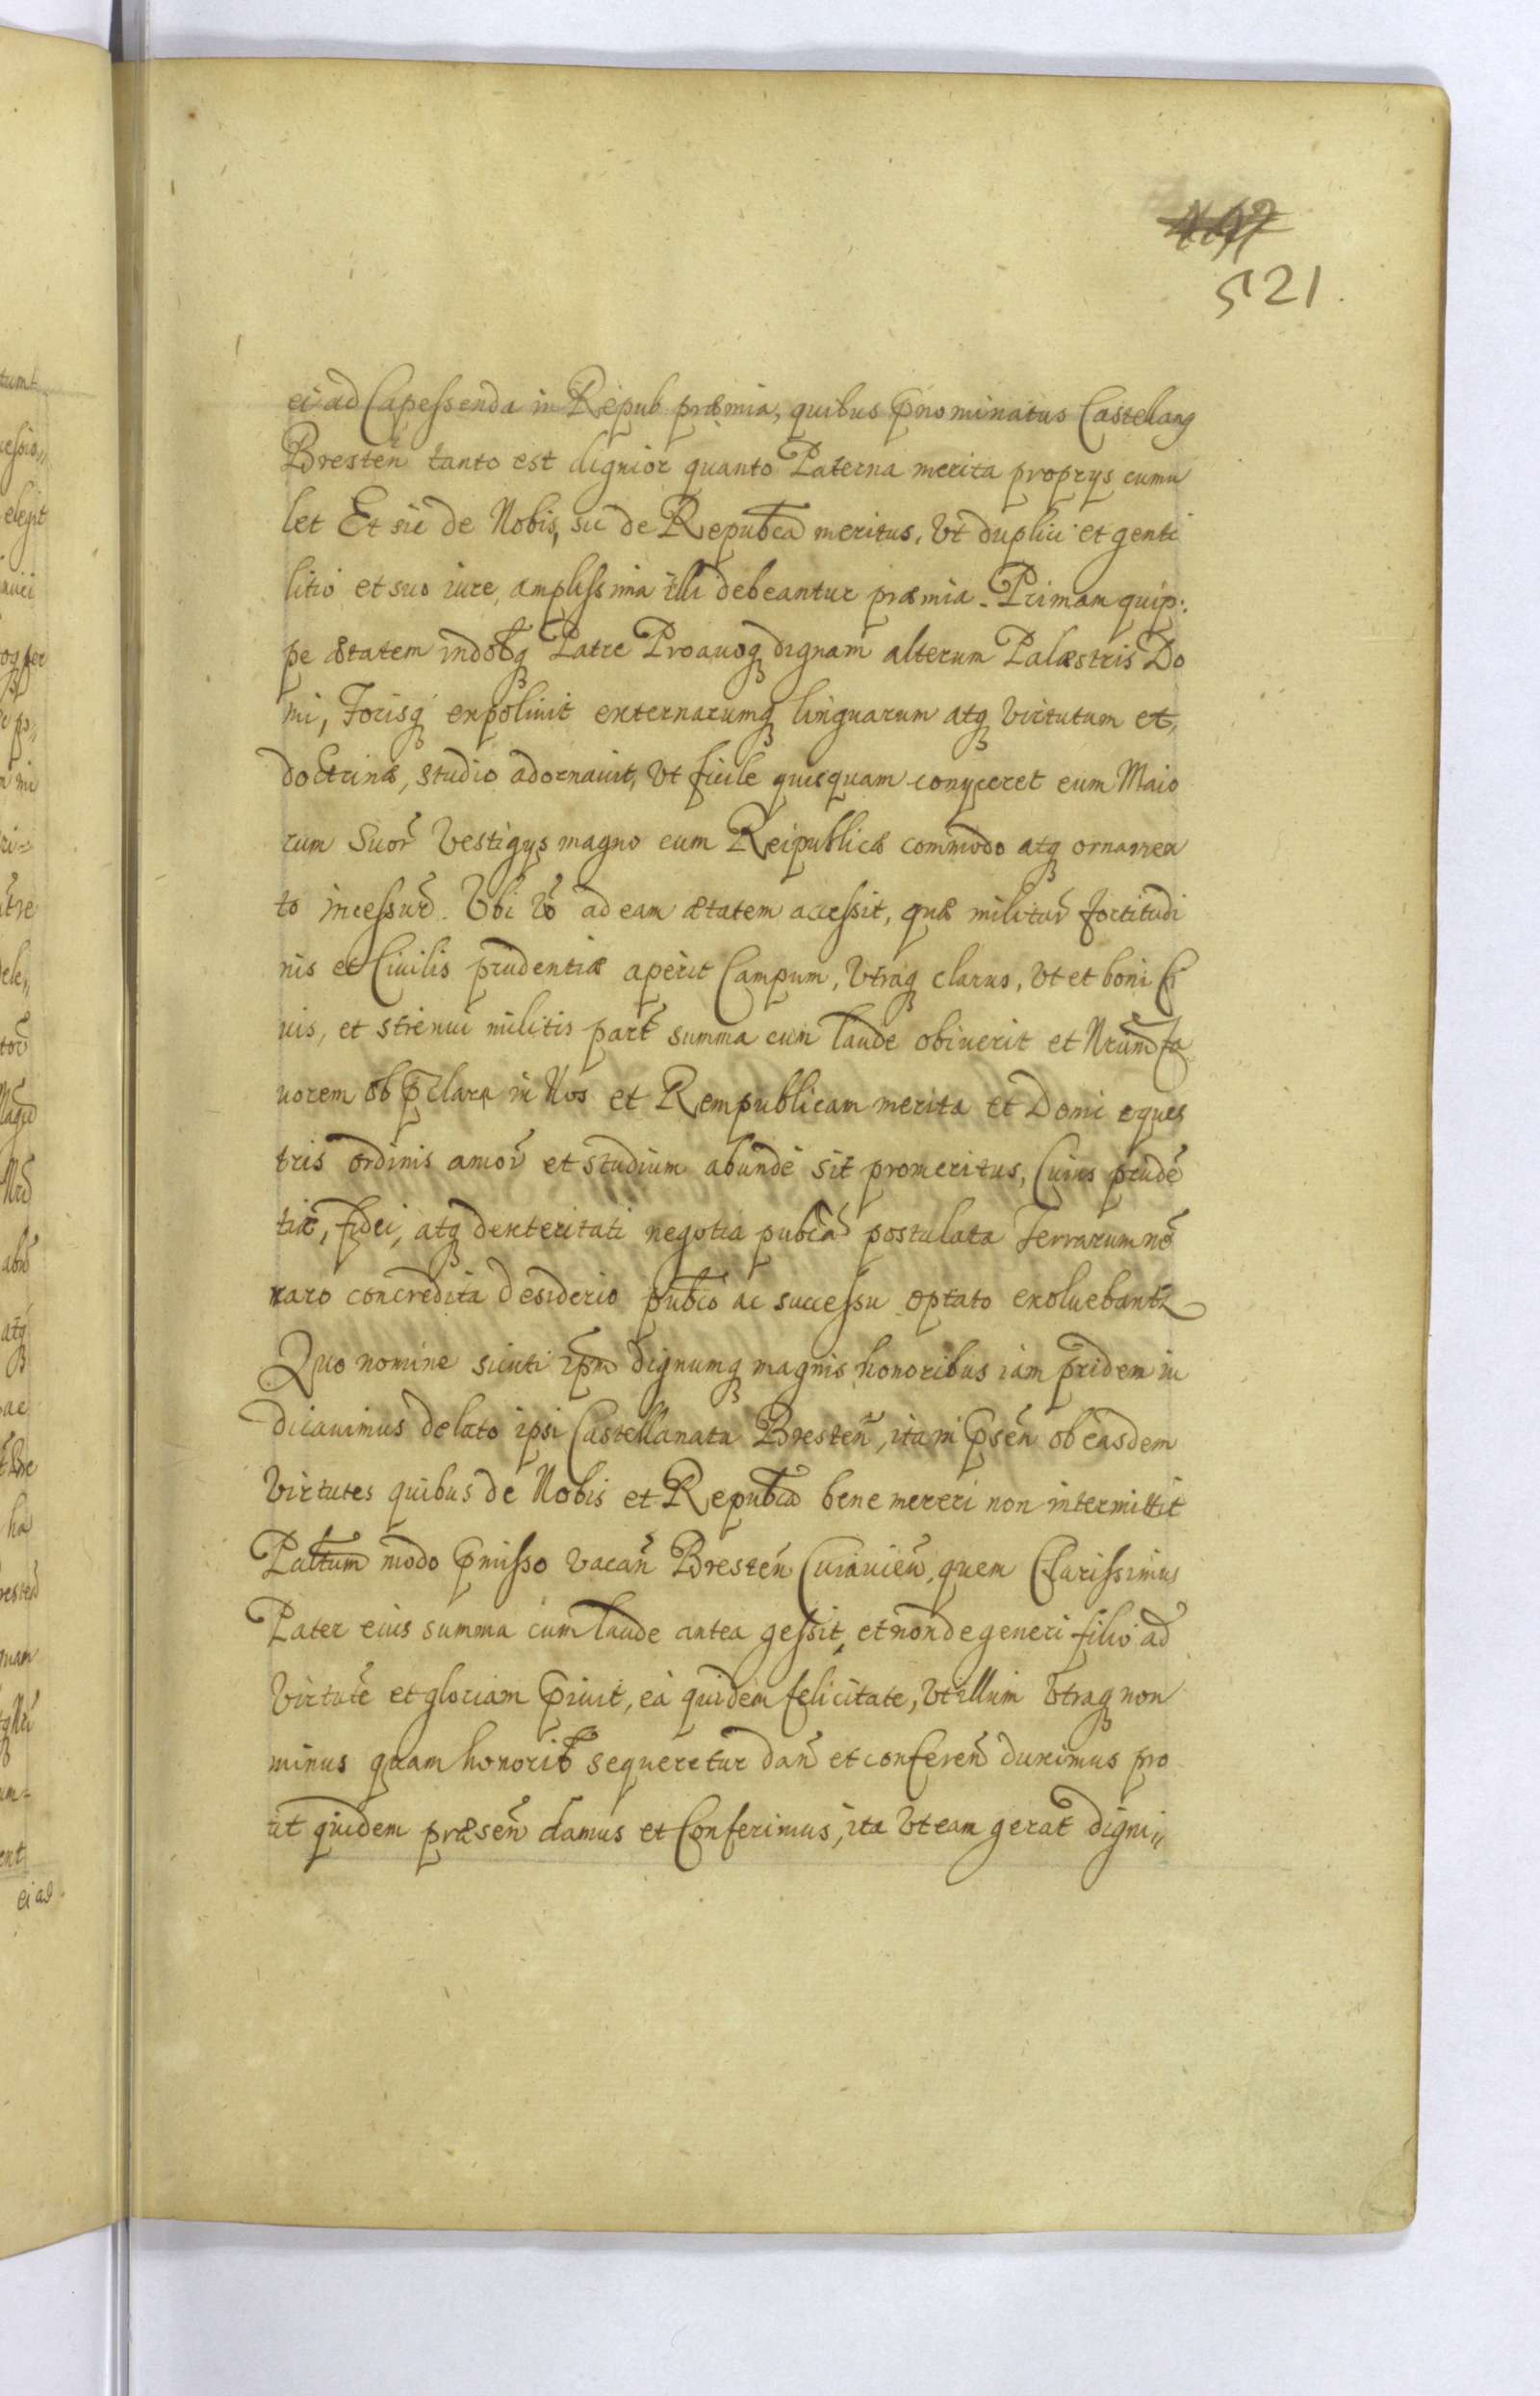 521.
ei ad Capessenda in Repub præmia, quibus p̃nominatus Castellanꝯ
Bresteñ tanto est dignior quanto Paterna merita proprys cumu
let Et sic de Nobis, sic de Repubca meritus, Vt duplici et genti
litio et suo iure, amplissima illi debeantur præmia. Primam quip:
pe ætatem indolẽq Patre Proauoq dignam alterum Palæstris Do
mi, Forisq expoliuit externarumq linguarum atq Virtutum et,
doctrinæ, studio adornauit, Vt facile quisquam conyceret eum Maio
rum Suor̃ Vestigys magno cum Reipublicæ commodo atq ornamen
to incessur̃. Vbi Vo ad eam ætatem accessit, quæ militar̃ fortitudi
nis et Ciuilis prudentiæ aperit Campum, Vtraq clarus, Vt et boni Ci
uis, et strenui militis part̃ summa cum laude obiuerit et Nrum fa
uorem ob p̃clara in Nos et Rempublicam merita et Domi eques
tris ordinis amor̃ et studium abundè sit promeritus, Cuius prudẽ
tiæ, fidei, atq dexteritati negotia pubca postulata Terrarum nõ
raro concredita desiderio pubco ac successu optato exoluebantr
Quo nomine sicuti ipm dignumq magnis honoribus iam pridem iu
dicauimus delato ipsi Castellanata Bresteñ, ita in p̃señ ob easdem
Virtutes quibus de Nobis et Repubca bene mereri non intermittit
Paltum modo p̃misso Vacañ Bresteñ Cuiauieñ, quem Clarissimus
Pater eius summa cum laude antea gessit, et non degeneri filio ad
Virtutẽ et gloriam p̃iuit, eà quidem felicitate, Vt illum Vtraq non
minus quam honorib sequeretur dañ et confereñ duximus pro
ut quidem præseñ damus et Conferimus, ita Vt eam gerat digni〃